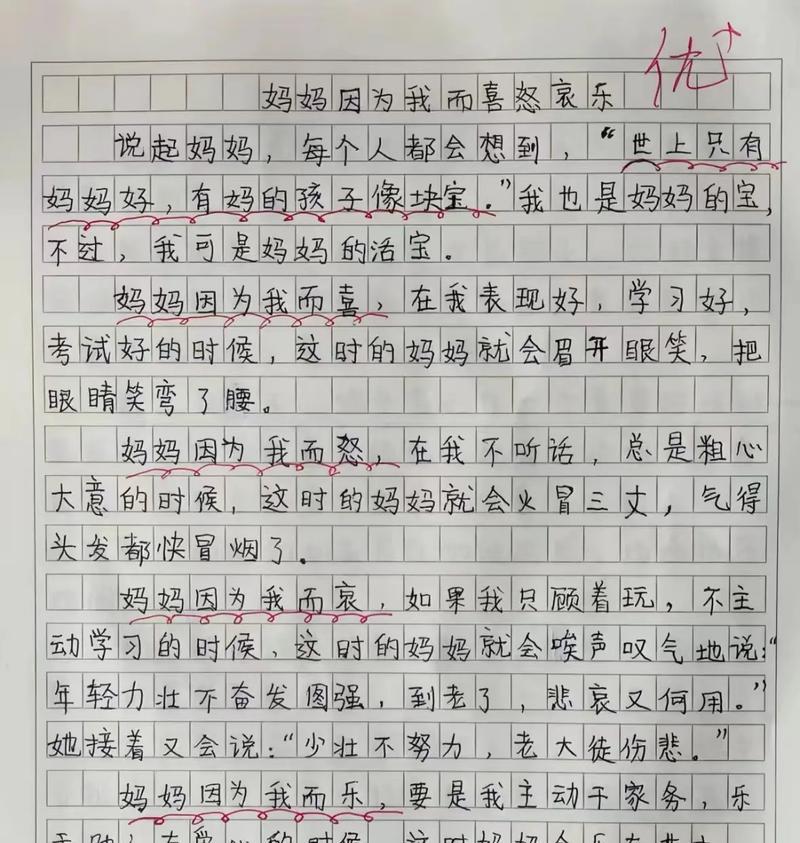 优+
妈妈因为我而喜怒哀乐
说起妈妈，每个人都会想到，“世上只有
妈妈好，有妈的孩子像块宝。”我也是妈妈的宝，
不过，我可是妈妈的活宝。
妈妈因为我而喜，在我表现好，学习好，
考试好的时候，这时的妈妈就会眉开眼笑，把
眼睛笑弯了腰。
妈妈因为我而怒，在我不听话，总是粗心
大意的时候，这时的妈妈就会火冒三丈，气得
头发都快冒烟了。
妈妈因为我而哀，如果我只顾着玩，不主
动学习的时候，这时的妈妈就会唉声叹气地说：“
年轻力壮不奋发图强，到老了，悲哀又何用。”
她接着又会说：“少壮不努力，老大徒伤悲。”
妈妈因为我而乐，要是我主动干家务，乐
的时候，这时妈妈会乐